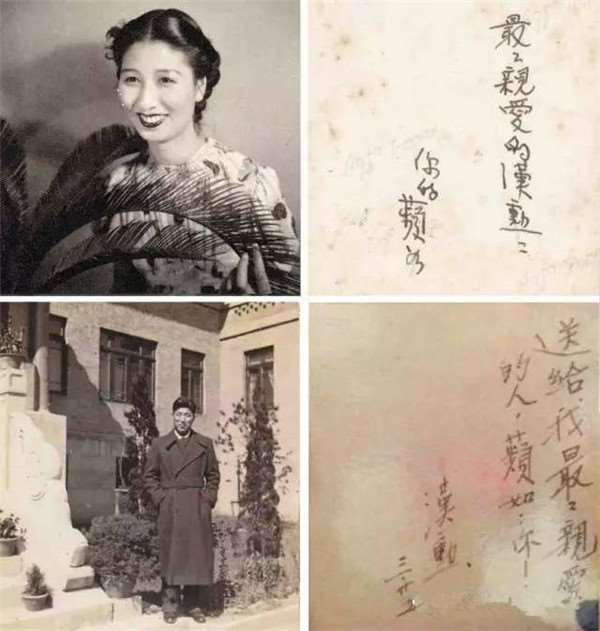 最々親愛的漢勳：
你的蘋如
送給我最々親愛
的人，蘋如：你！
漢勳
三廿五